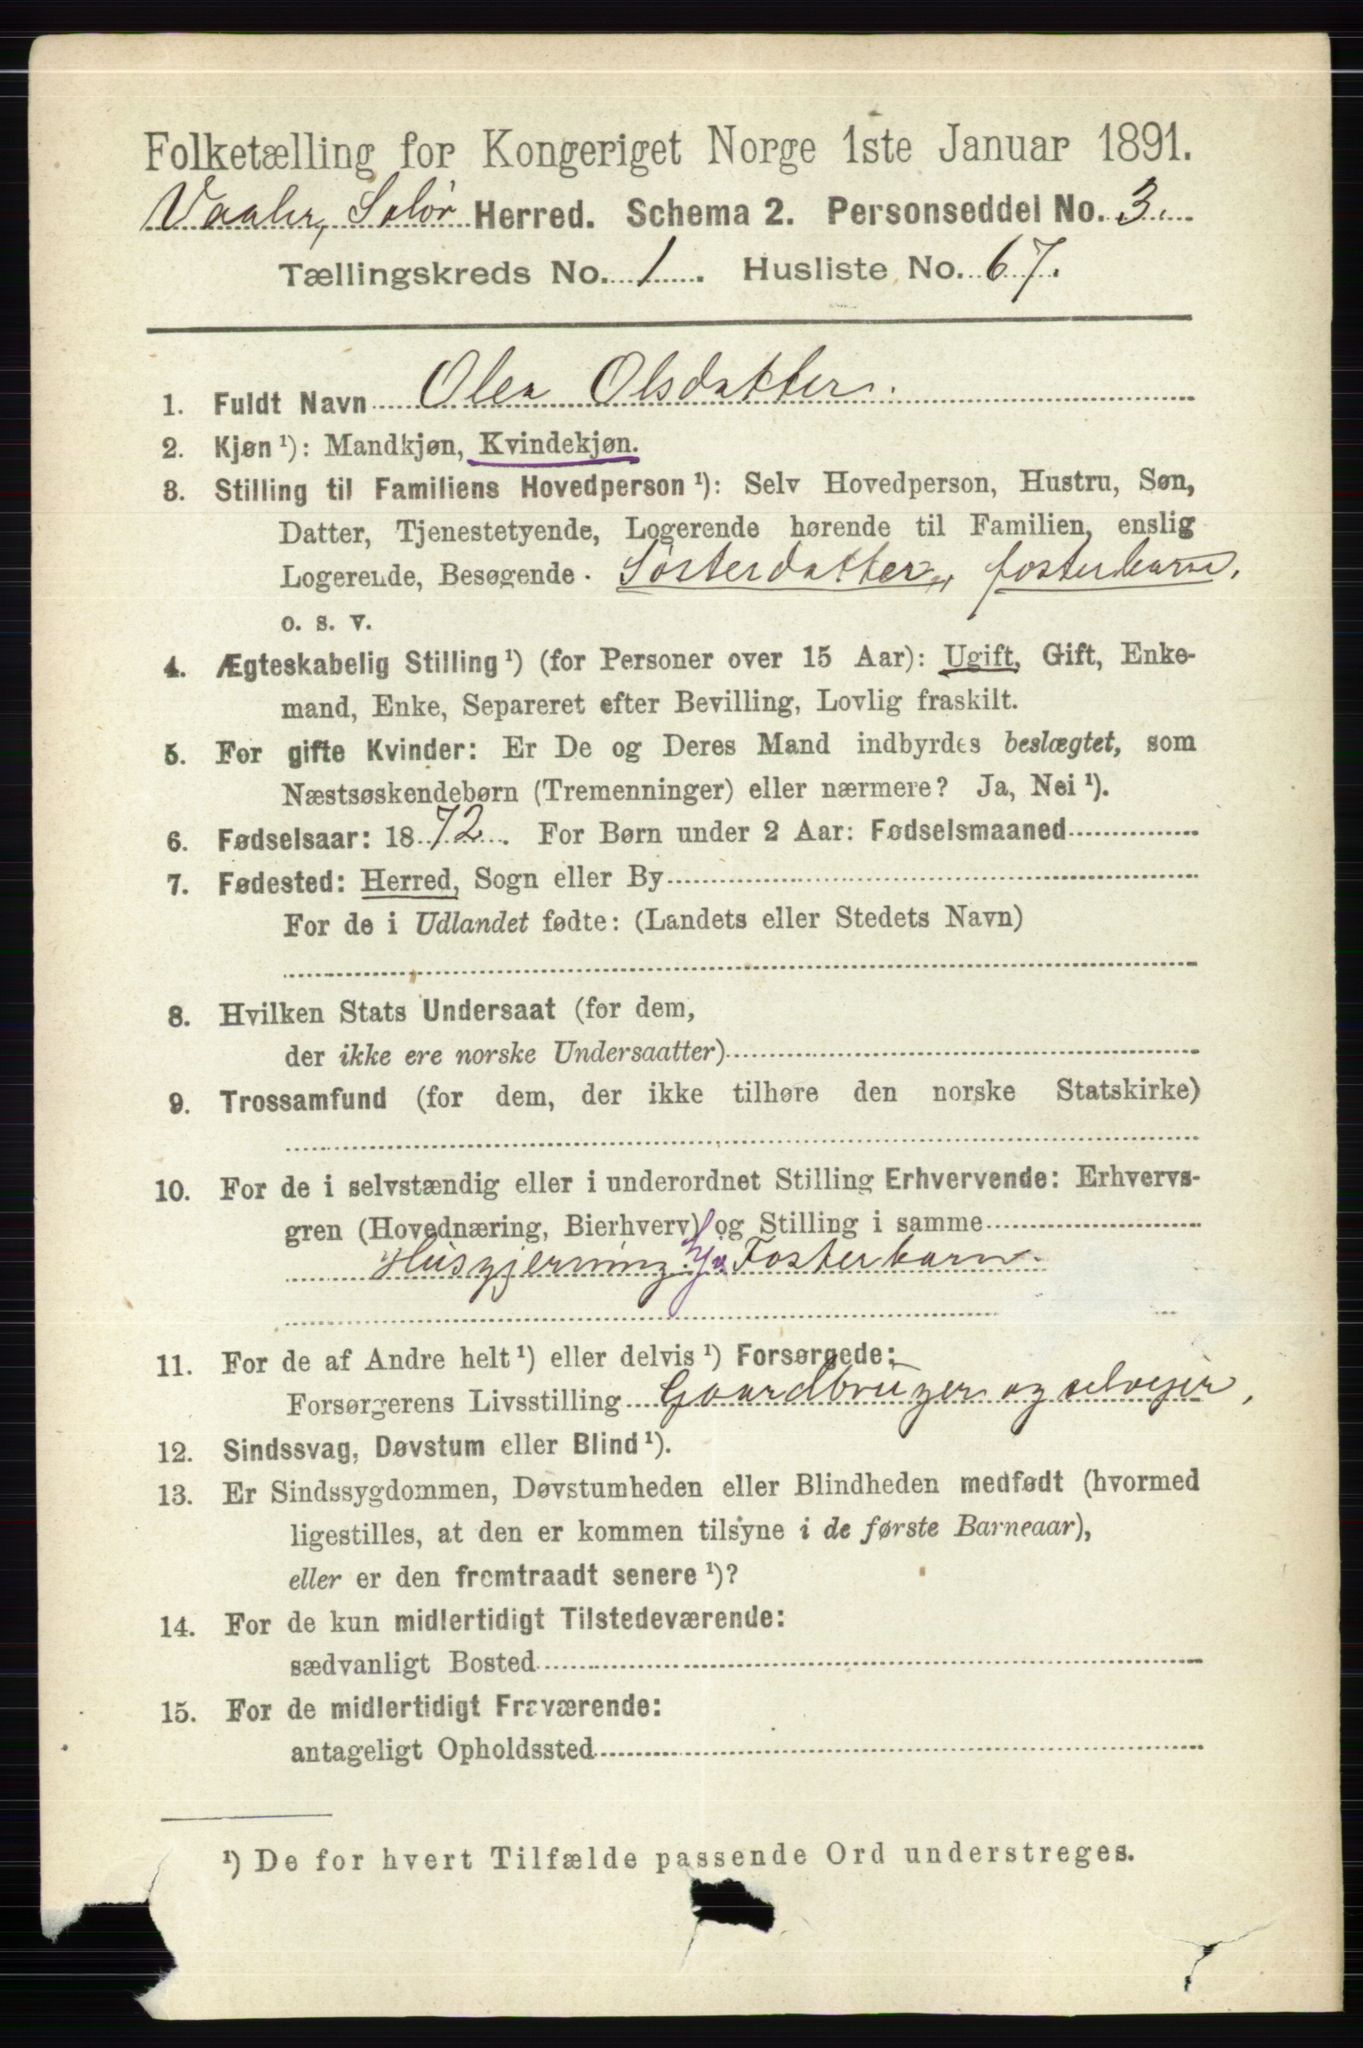 Folketælling for Kongeriget Norge 1ste Januar 1891.
Vaaler, Solør Herred. Schema 2. Personseddel No. 3.
Tællingskreds No. 1. Husliste No. 67.
1. Fuldt Navn Olea Olsdatter.
2. Kjøn¹): Mandkjøn, Kvindekjøn.
3. Stilling til Familiens Hovedperson¹): Selv Hovedperson, Hustru, Søn,
Datter, Tjenestetyende, Logerende hørende til Familien, enslig
Logerende, Besøgende. Sösterdatter, fosterbarn.
o. s. v.
4. Ægteskabelig Stilling¹) (for Personer over 15 Aar): Ugift, Gift, Enke-
mand, Enke, Separeret efter Bevilling, Lovlig fraskilt.
5. For gifte Kvinder: Er De og Deres Mand indbyrdes beslægtet, som
Næstsøskendebørn (Tremenninger) eller nærmere? Ja, Nei¹).
6. Fødselsaar: 1872. For Børn under 2 Aar: Fødselsmaaned
7. Fødested: Herred, Sogn eller By
For de i Udlandet fødte: (Landets eller Stedets Navn)
8. Hvilken Stats Undersaat (for dem,
der ikke ere norske Undersaatter)
9. Trossamfund (for dem, der ikke tilhøre den norske Statskirke)
10. For de i selvstændig eller i underordnet Stilling Erhvervende: Erhvervs-
gren (Hovednæring, Bierhverv) og Stilling i samme
Husgjerning. Fosterbarn.
11. For de af Andre helt¹) eller delvis¹) Forsørgede:
Forsørgerens Livsstilling Gaardbruger og selveier,
12. Sindssvag, Døvstum eller Blind¹).
13. Er Sindssygdommen, Døvstumheden eller Blindheden medfødt (hvormed
ligestilles, at den er kommen tilsyne i de første Barneaar),
eller er den fremtraadt senere¹)?
14. For de kun midlertidigt Tilstedeværende:
sædvanligt Bosted
15. For de midlertidigt Fraværende:
antageligt Opholdssted
¹) De for hvert Tilfælde passende Ord understreges.